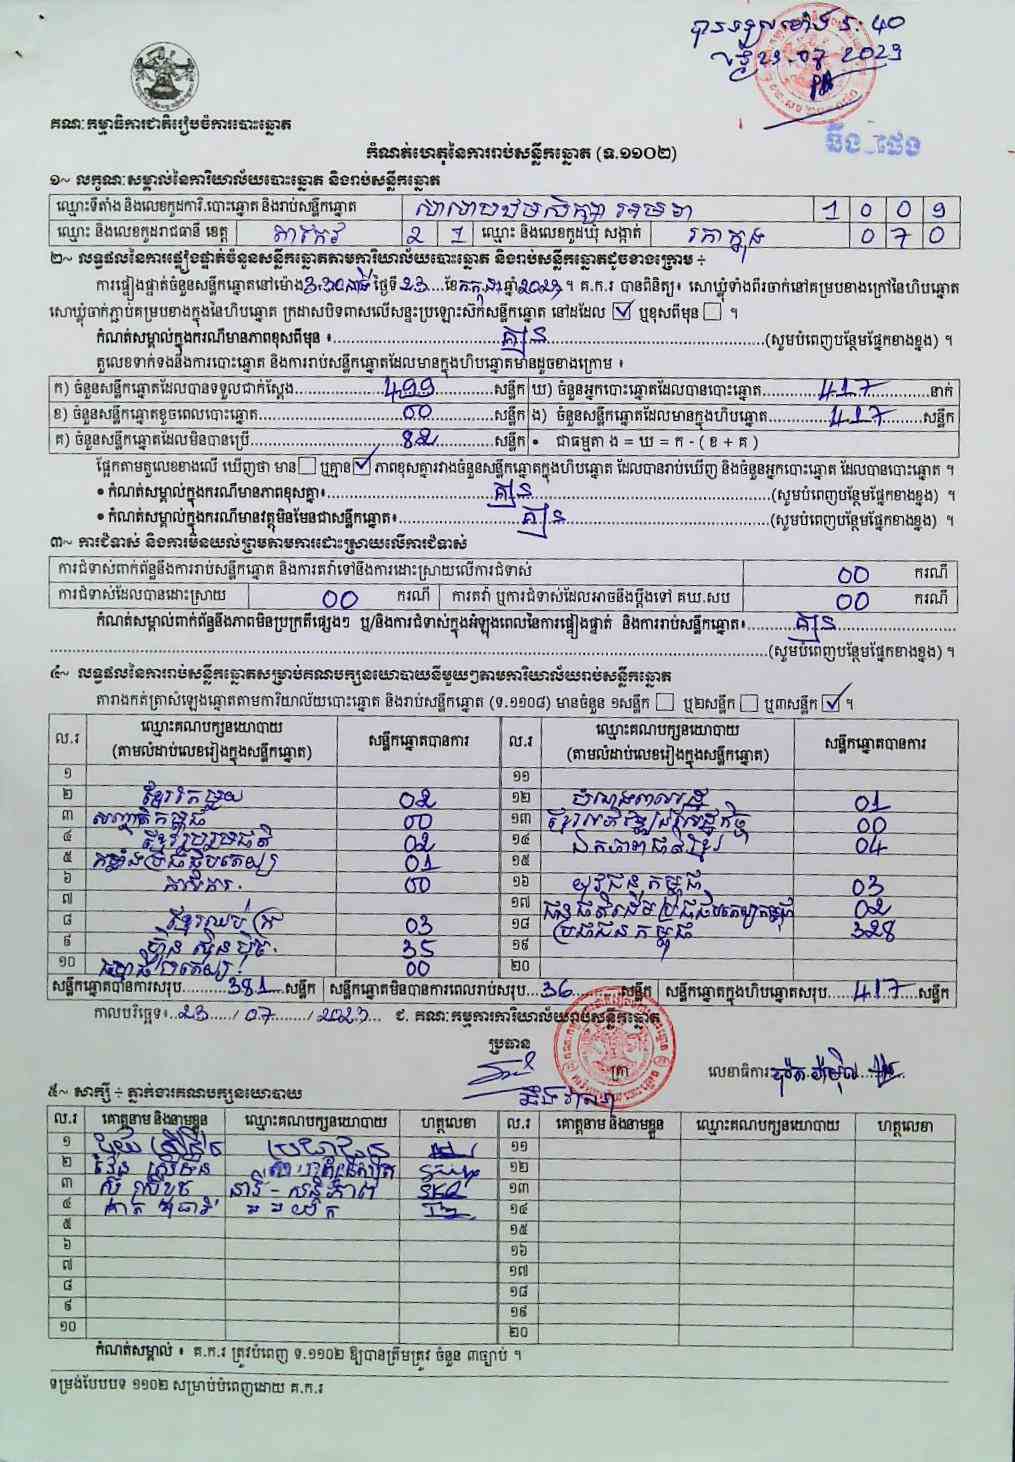 បានទទួលម៉ោង ៖ 40
ថ្ងៃ 23.07.2023
ឆឹង ផេង
គណៈកម្មាធិការជាតិរៀបចំការបោះឆ្នោត
កំណត់ហេតុនៃការរាប់សន្លឹកឆ្នោត (ទ.១១០២)
១~ លក្ខណៈសម្គាល់នៃការិយាល័យបោះឆ្នោត និងរាប់សន្លឹកឆ្នោត
ឈ្មោះទីតាំង និងលេខកូដការិ.បោះឆ្នោត និងរាប់សន្លឹកឆ្នោត សាលាបឋមសិក្សា 1 0 0 9
ឈ្មោះ និងលេខកូដរាជធានី ខេត្ត តាកែវ 2 1 ឈ្មោះ និងលេខកូដឃុំ សង្កាត់ រកាក្នុង 0 7 0
២~ លទ្ធផលនៃការផ្ទៀងផ្ទាត់ចំនួនសន្លឹកឆ្នោតតាមការិយាល័យបោះឆ្នោត និងរាប់សន្លឹកឆ្នោតដូចខាងក្រោម ÷
ការផ្ទៀងផ្ទាត់ចំនួនសន្លឹកឆ្នោតនៅម៉ោង 3:30នាទី ថ្ងៃទី 23 ខែ កក្កដា ឆ្នាំ 2023 ។ គ.ក.រ បានពិនិត្យ៖ សោឃ្លុំទាំងពីរចាក់នៅគម្របខាងក្រៅនៃហិបឆ្នោត
សោឃ្លុំចាក់ភ្ជាប់គម្របខាងក្នុងនៃហិបឆ្នោត ក្រដាសបិទពាសលើសន្ទះប្រឡោះស៊កសន្លឹកឆ្នោត នៅដដែល ☑ ឬខុសពីមុន ☐ ។
កំណត់សម្គាល់ក្នុងករណីមានភាពខុសពីមុន ៖ គ្មាន (សូមបំពេញបន្ថែមផ្នែកខាងខ្នង) ។
តួលេខទាក់ទងនឹងការបោះឆ្នោត និងការរាប់សន្លឹកឆ្នោតដែលមានក្នុងហិបឆ្នោតមានដូចខាងក្រោម ៖
ក) ចំនួនសន្លឹកឆ្នោតដែលបានទទួលជាក់ស្តែង 499 សន្លឹក ឃ) ចំនួនអ្នកបោះឆ្នោតដែលបានបោះឆ្នោត 417 នាក់
ខ) ចំនួនសន្លឹកឆ្នោតខូចពេលបោះឆ្នោត 00 សន្លឹក ង) ចំនួនសន្លឹកឆ្នោតដែលមានក្នុងហិបឆ្នោត 417 សន្លឹក
គ) ចំនួនសន្លឹកឆ្នោតដែលមិនបានប្រើ 82 សន្លឹក • ជាធម្មតា ង = ឃ = ក - ( ខ + គ )
ផ្អែកតាមតួលេខខាងលើ ឃើញថា មាន ☐ ឬគ្មាន ☑ ភាពខុសគ្នារវាងចំនួនសន្លឹកឆ្នោតក្នុងហិបឆ្នោត ដែលបានរាប់ឃើញ និងចំនួនអ្នកបោះឆ្នោត ដែលបានបោះឆ្នោត ។
• កំណត់សម្គាល់ក្នុងករណីមានភាពខុសគ្នា៖ គ្មាន (សូមបំពេញបន្ថែមផ្នែកខាងខ្នង) ។
• កំណត់សម្គាល់ក្នុងករណីមានវត្ថុមិនមែនជាសន្លឹកឆ្នោត៖ គ្មាន (សូមបំពេញបន្ថែមផ្នែកខាងខ្នង) ។
៣~ ការជំទាស់ និងការមិនយល់ព្រមតាមការដោះស្រាយលើការជំទាស់
ការជំទាស់ពាក់ព័ន្ធនឹងការរាប់សន្លឹកឆ្នោត និងការតវ៉ាទៅនឹងការដោះស្រាយលើការជំទាស់ 00 ករណី
ការជំទាស់ដែលបានដោះស្រាយ 00 ករណី ការតវ៉ា ឬការជំទាស់ដែលអាចនឹងប្តឹងទៅ គឃ.សប 00 ករណី
កំណត់សម្គាល់ពាក់ព័ន្ធនឹងភាពមិនប្រក្រតីផ្សេងៗ ឬ/និងការជំទាស់ក្នុងអំឡុងពេលនៃការផ្ទៀងផ្ទាត់ និងការរាប់សន្លឹកឆ្នោត៖ គ្មាន
(សូមបំពេញបន្ថែមផ្នែកខាងខ្នង) ។
៤~ លទ្ធផលនៃការរាប់សន្លឹកឆ្នោតសម្រាប់គណបក្សនយោបាយនីមួយៗតាមការិយាល័យរាប់សន្លឹកឆ្នោត
តារាងកត់ត្រាសំឡេងឆ្នោតតាមការិយាល័យបោះឆ្នោត និងរាប់សន្លឹកឆ្នោត (ទ.១១០៨) មានចំនួន ១សន្លឹក ☐ ឬ២សន្លឹក ☐ ឬ៣សន្លឹក ☑ ។
ល.រ ឈ្មោះគណបក្សនយោបាយ (តាមលំដាប់លេខរៀងក្នុងសន្លឹកឆ្នោត) សន្លឹកឆ្នោតបានការ ល.រ ឈ្មោះគណបក្សនយោបាយ (តាមលំដាប់លេខរៀងក្នុងសន្លឹកឆ្នោត) សន្លឹកឆ្នោតបានការ
១ ១១
២ ខ្មែររួបរួម 02 ១២ 01
៣ សញ្ជាតិកម្ពុជា 00 ១៣ 00
៤ 02 ១៤ 04
៥ កម្លាំងប្រជាធិបតេយ្យ 01 ១៥
៦ កសិករ 00 ១៦ យុវជនកម្ពុជា 03
៧ ១៧ 02
៨ ខ្មែរឈប់ក្រ 03 ១៨ ប្រជាជនកម្ពុជា 328
៩ ហ៊្វុនស៊ិនប៉ិច 35 ១៩
១០ 00 ២០
សន្លឹកឆ្នោតបានការសរុប 381 សន្លឹក សន្លឹកឆ្នោតមិនបានការពេលរាប់សរុប 36 សន្លឹក សន្លឹកឆ្នោតក្នុងហិបឆ្នោតសរុប 417 សន្លឹក
កាលបរិច្ឆេទ៖ 23 / 07 / 2023 ជ. គណៈកម្មការការិយាល័យរាប់សន្លឹកឆ្នោត
ប្រធាន
ត្រា លេខាធិការ
៥~ សាក្សី ÷ ភ្នាក់ងារគណបក្សនយោបាយ
ល.រ គោត្តនាម និងនាមខ្លួន ឈ្មោះគណបក្សនយោបាយ ហត្ថលេខា ល.រ គោត្តនាម និងនាមខ្លួន ឈ្មោះគណបក្សនយោបាយ ហត្ថលេខា
១ ប្រជាជន ១១
២ ១២
៣ ១៣
៤ ១៤
៥ ១៥
៦ ១៦
៧ ១៧
៨ ១៨
៩ ១៩
១០ ២០
កំណត់សម្គាល់ ៖ គ.ក.រ ត្រូវបំពេញ ទ.១១០២ ឱ្យបានត្រឹមត្រូវ ចំនួន ៣ច្បាប់ ។
ទម្រង់បែបបទ ១១០២ សម្រាប់បំពេញដោយ គ.ក.រ